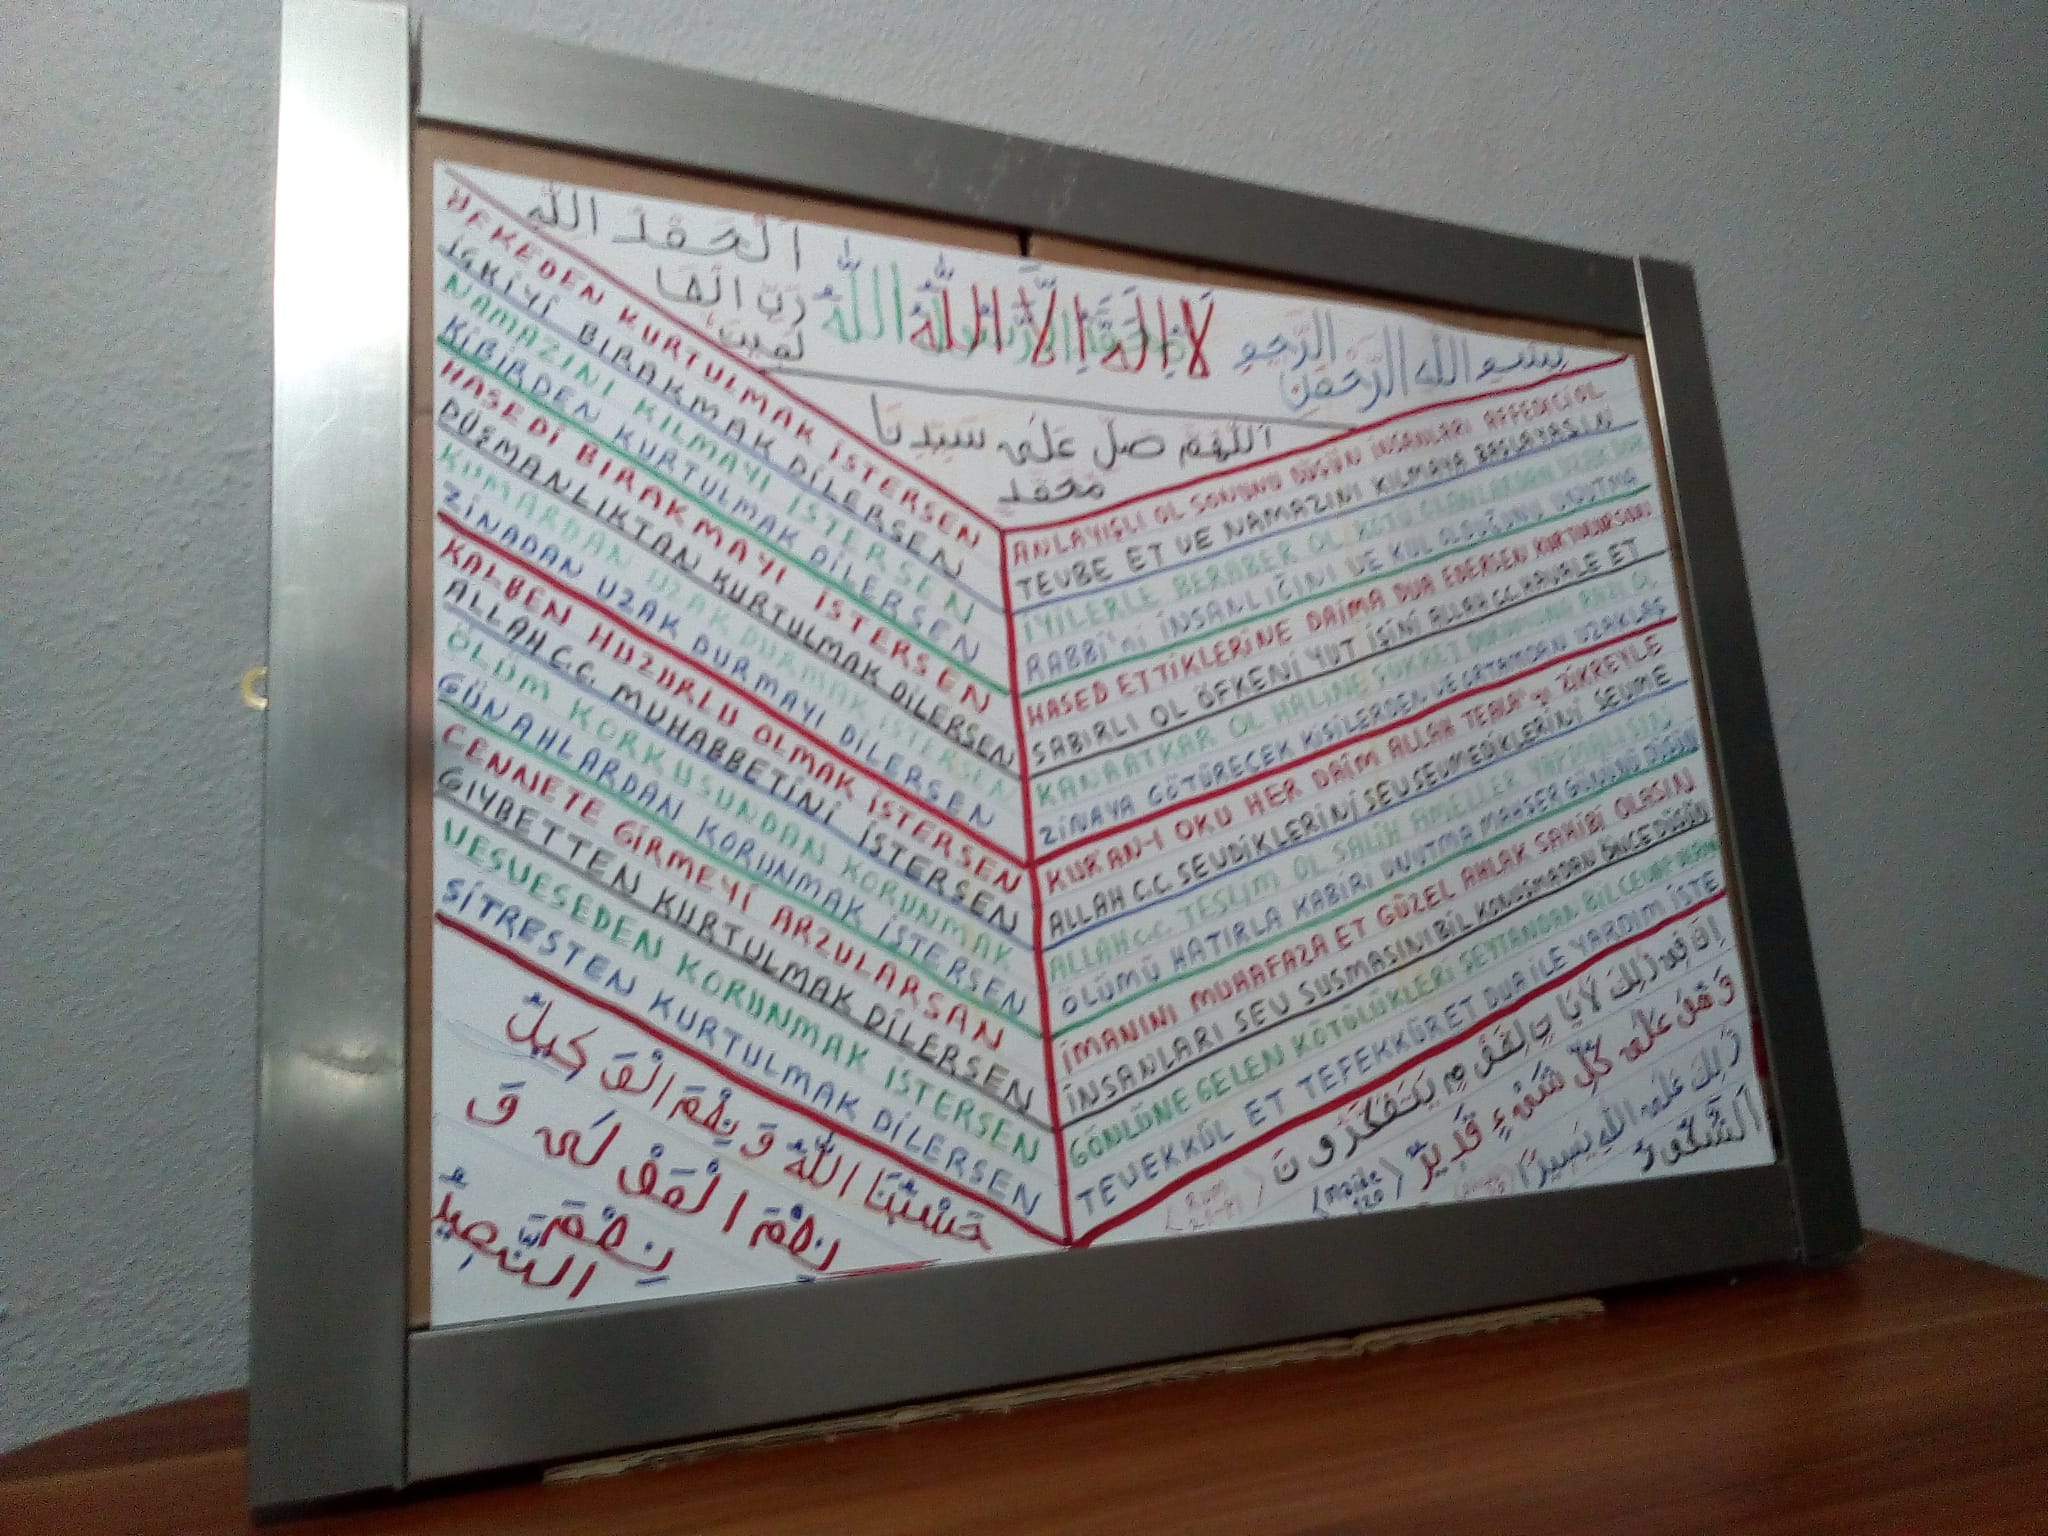 بِسْمِ اللهِ الرَّحْمٰنِ
الرَّحِيمِ
لَا إِلٰهَ إِلَّا اللّٰهُ
اَلْحَمْدُ اللّٰهِ
رَبِّ الْعَا
لَمِينَ
اَللّٰهُمَّ صَلِّ عَلٰى سَيِّدِنَا
مُحَمَّدٍ
ÖFKEDEN KURTULMAK İSTERSEN
İÇKİYİ BIRAKMAK DİLERSEN
NAMAZINI KILMAYI İSTERSEN
KİBİRDEN KURTULMAK DİLERSEN
HASEDİ BIRAKMAYI İSTERSEN
DÜŞMANLIKTAN KURTULMAK DİLERSEN
KUMARDAN UZAK DURMAK İSTERSEN
ZİNADAN UZAK DURMAYI DİLERSEN
KALBEN HUZURLU OLMAK İSTERSEN
ALLAH C.C. MUHABBETİNİ İSTERSEN
ÖLÜM KORKUSUNDAN KORUNMAK
GÜNAHLARDAN KORUNMAK İSTERSEN
CENNETE GİRMEYİ ARZULARSAN
GIYBETTEN KURTULMAK DİLERSEN
VESVESEDEN KORUNMAK İSTERSEN
SİTRESTEN KURTULMAK DİLERSEN
ANLAYIŞLI OL SONUNU DÜŞÜN İNSANLARI AFFEDİCİ OL
TEVBE ET VE NAMAZINI KILMAYA BAŞLAYASIN
İYİLERLE BERABER OL KÖTÜ OLANLARDAN UZAK DUR
RABBİ'Nİ İNSANLIĞINI VE KUL OLDUĞUNU UNUTMA
HASED ETTİKLERİNE DAİMA DUA EDERSEN KURTULURSUN
SABIRLI OL ÖFKENİ YUT İŞİNİ ALLAH C.C. HAVALE ET
KANAATKAR OL HALİNE ŞÜKRET RAZI OL
ZİNAYA GÖTÜRECEK KİŞİLERDEN VE ORTAMDAN UZAKLAŞ
KURAN-I OKU HER DAİM ALLAH TEALA'yı ZİKREYLE
ALLAH C.C. SEVDİKLERİNİ SEV SEVMEDİKLERİNİ SEVME
ALLAH C.C. TESLİM OL SALİH AMELLER YAPMALISIN
ÖLÜMÜ HATIRLA KABİRİ UNUTMA MAHŞER GÜNÜNÜ DÜŞÜN
İMANINI MUHAFAZA ET GÜZEL AHLAK SAHİBİ OLASIN
İNSANLARI SEV SUSMASINI BİL KONUŞMADAN ÖNCE DÜŞÜN
GÖNLÜNE GELEN KÖTÜLÜKLERİ ŞEYTANDAN BİL
TEVEKKÜL ET TEFEKKÜR ET DUA İLE YARDIM İSTE
حَسْبُنَا اللّٰهُ وَنِعْمَ الْوَكِيلُ
نِعْمَ الْمَوْلٰى وَ
نِعْمَ
النَّصِيرُ
اِنَّ فِى ذٰلِكَ لَاٰيَاتٍ لِقَوْمٍ يَتَفَكَّرُونَ
(Rum
وَهُوَ عَلٰى كُلِّ شَىْءٍ قَدِيرٌ
(Maide
120)
ذٰلِكَ عَلَى اللّٰهِ يَسِيرًا
الشَّكُورُ